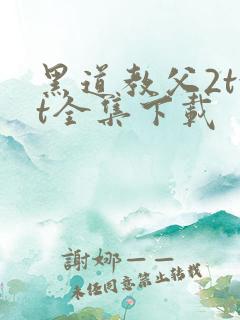 黑道教父2tx
t全集下载
謝娜——
未经同意禁止转载